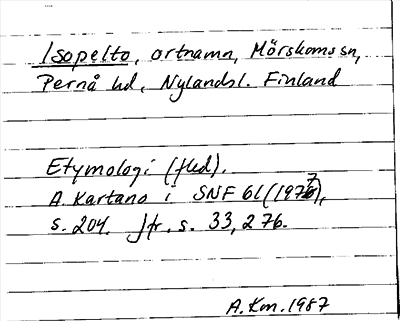 Isopelto, ortnamn, Mörskoms sn,
Pernå hd, Nylandsl. Finland
Etymologi (fled).
A. Kartano i SNF 61 (1977),
s. 204. Jfr. s. 33, 276.
A. Km. 1987